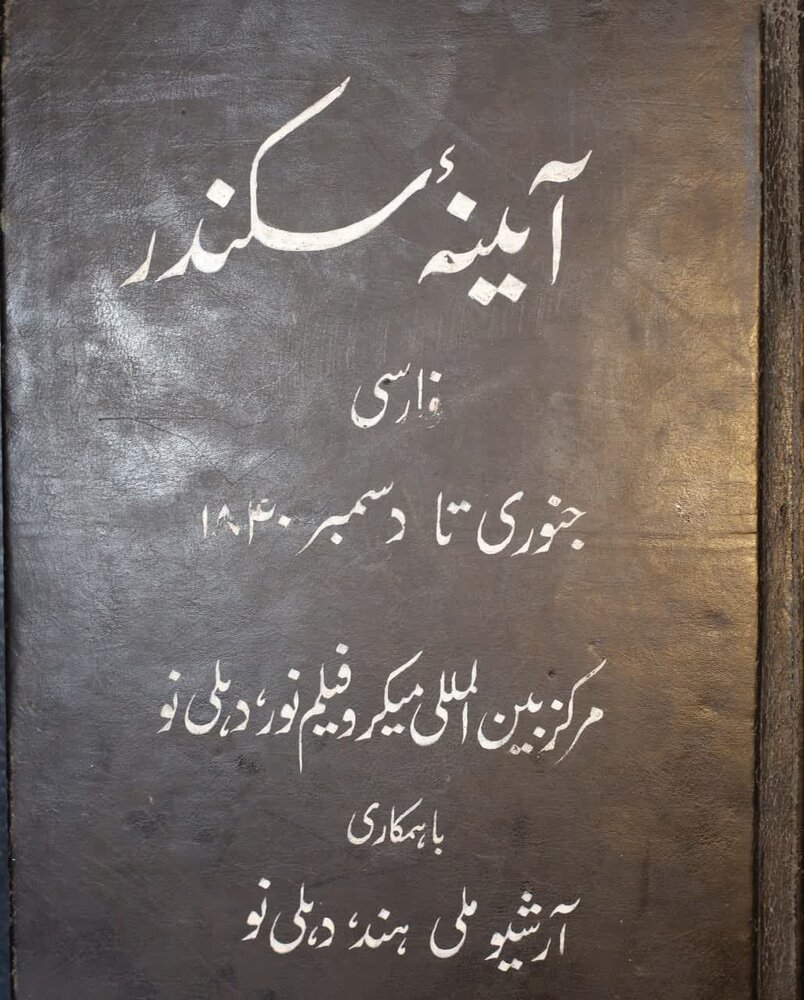 آیینۂ سکندر
فارسی
جنوری تا دسمبر ۱۸۴۰
مرکز بین المللی میکروفیلم نور، دہلی نو
باہمکاری
آرشیو ملی ہند، دہلی نو